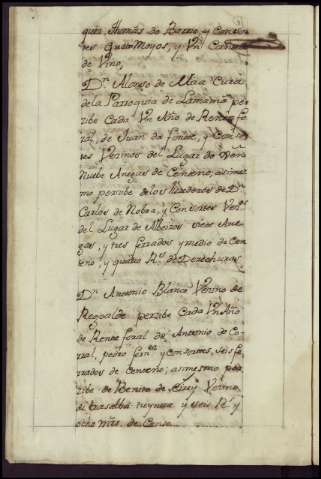 Thomas de Bueno, y Consor
tes quatro Moyos, y Un Cañado
de Vino,
Dn. Alonso de Maa Cura
de la Parroquia de Lamamà per
zibe Cada Un Año de Renta fo
ral, de Juan da Fonte, y Consor
tes Vezinos del Lugar de
Nuebe Anegas de Centeno, asimis
mo perzibe de los herederos de Dn.
Carlos de Nobòa, y Consortes Vez.s
del Lugar de seis Ane
gas, y tres ferrados y medio de Cen
teno, y quatro R.s de Derechuras
Dn. Antonio Blanco Vezino de
perzibe Cada Un Año
de Renta foral de Antonio do Co
rral, pedro fern.z y consortes, seis fe
rrados de centeno; asimesmo per
zibe de Benito de Vezino
de trasalba treynta y seis R.s y
ocho mrs. de Censo.